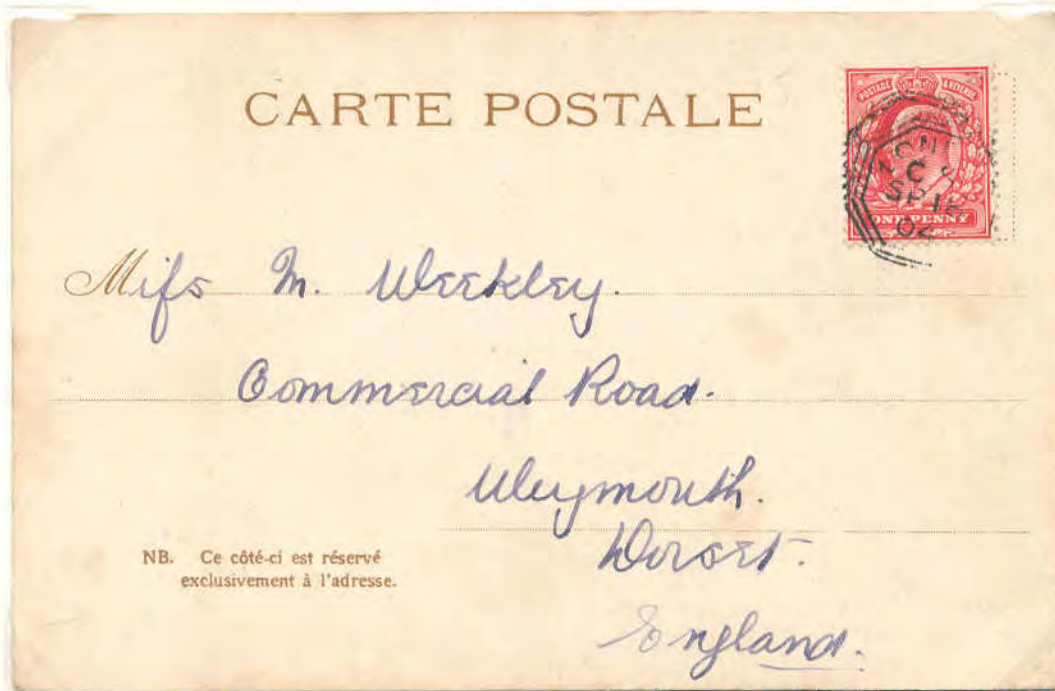 CARTE POSTALE
POSTAGE REVENUE
C
SP 16
04
ONE PENNY
Miſs M. Weekley.
Commercial Road.
Weymouth.
Dorset.
England.
NB. Ce côté-ci est réservé
exclusivement à l'adresse.